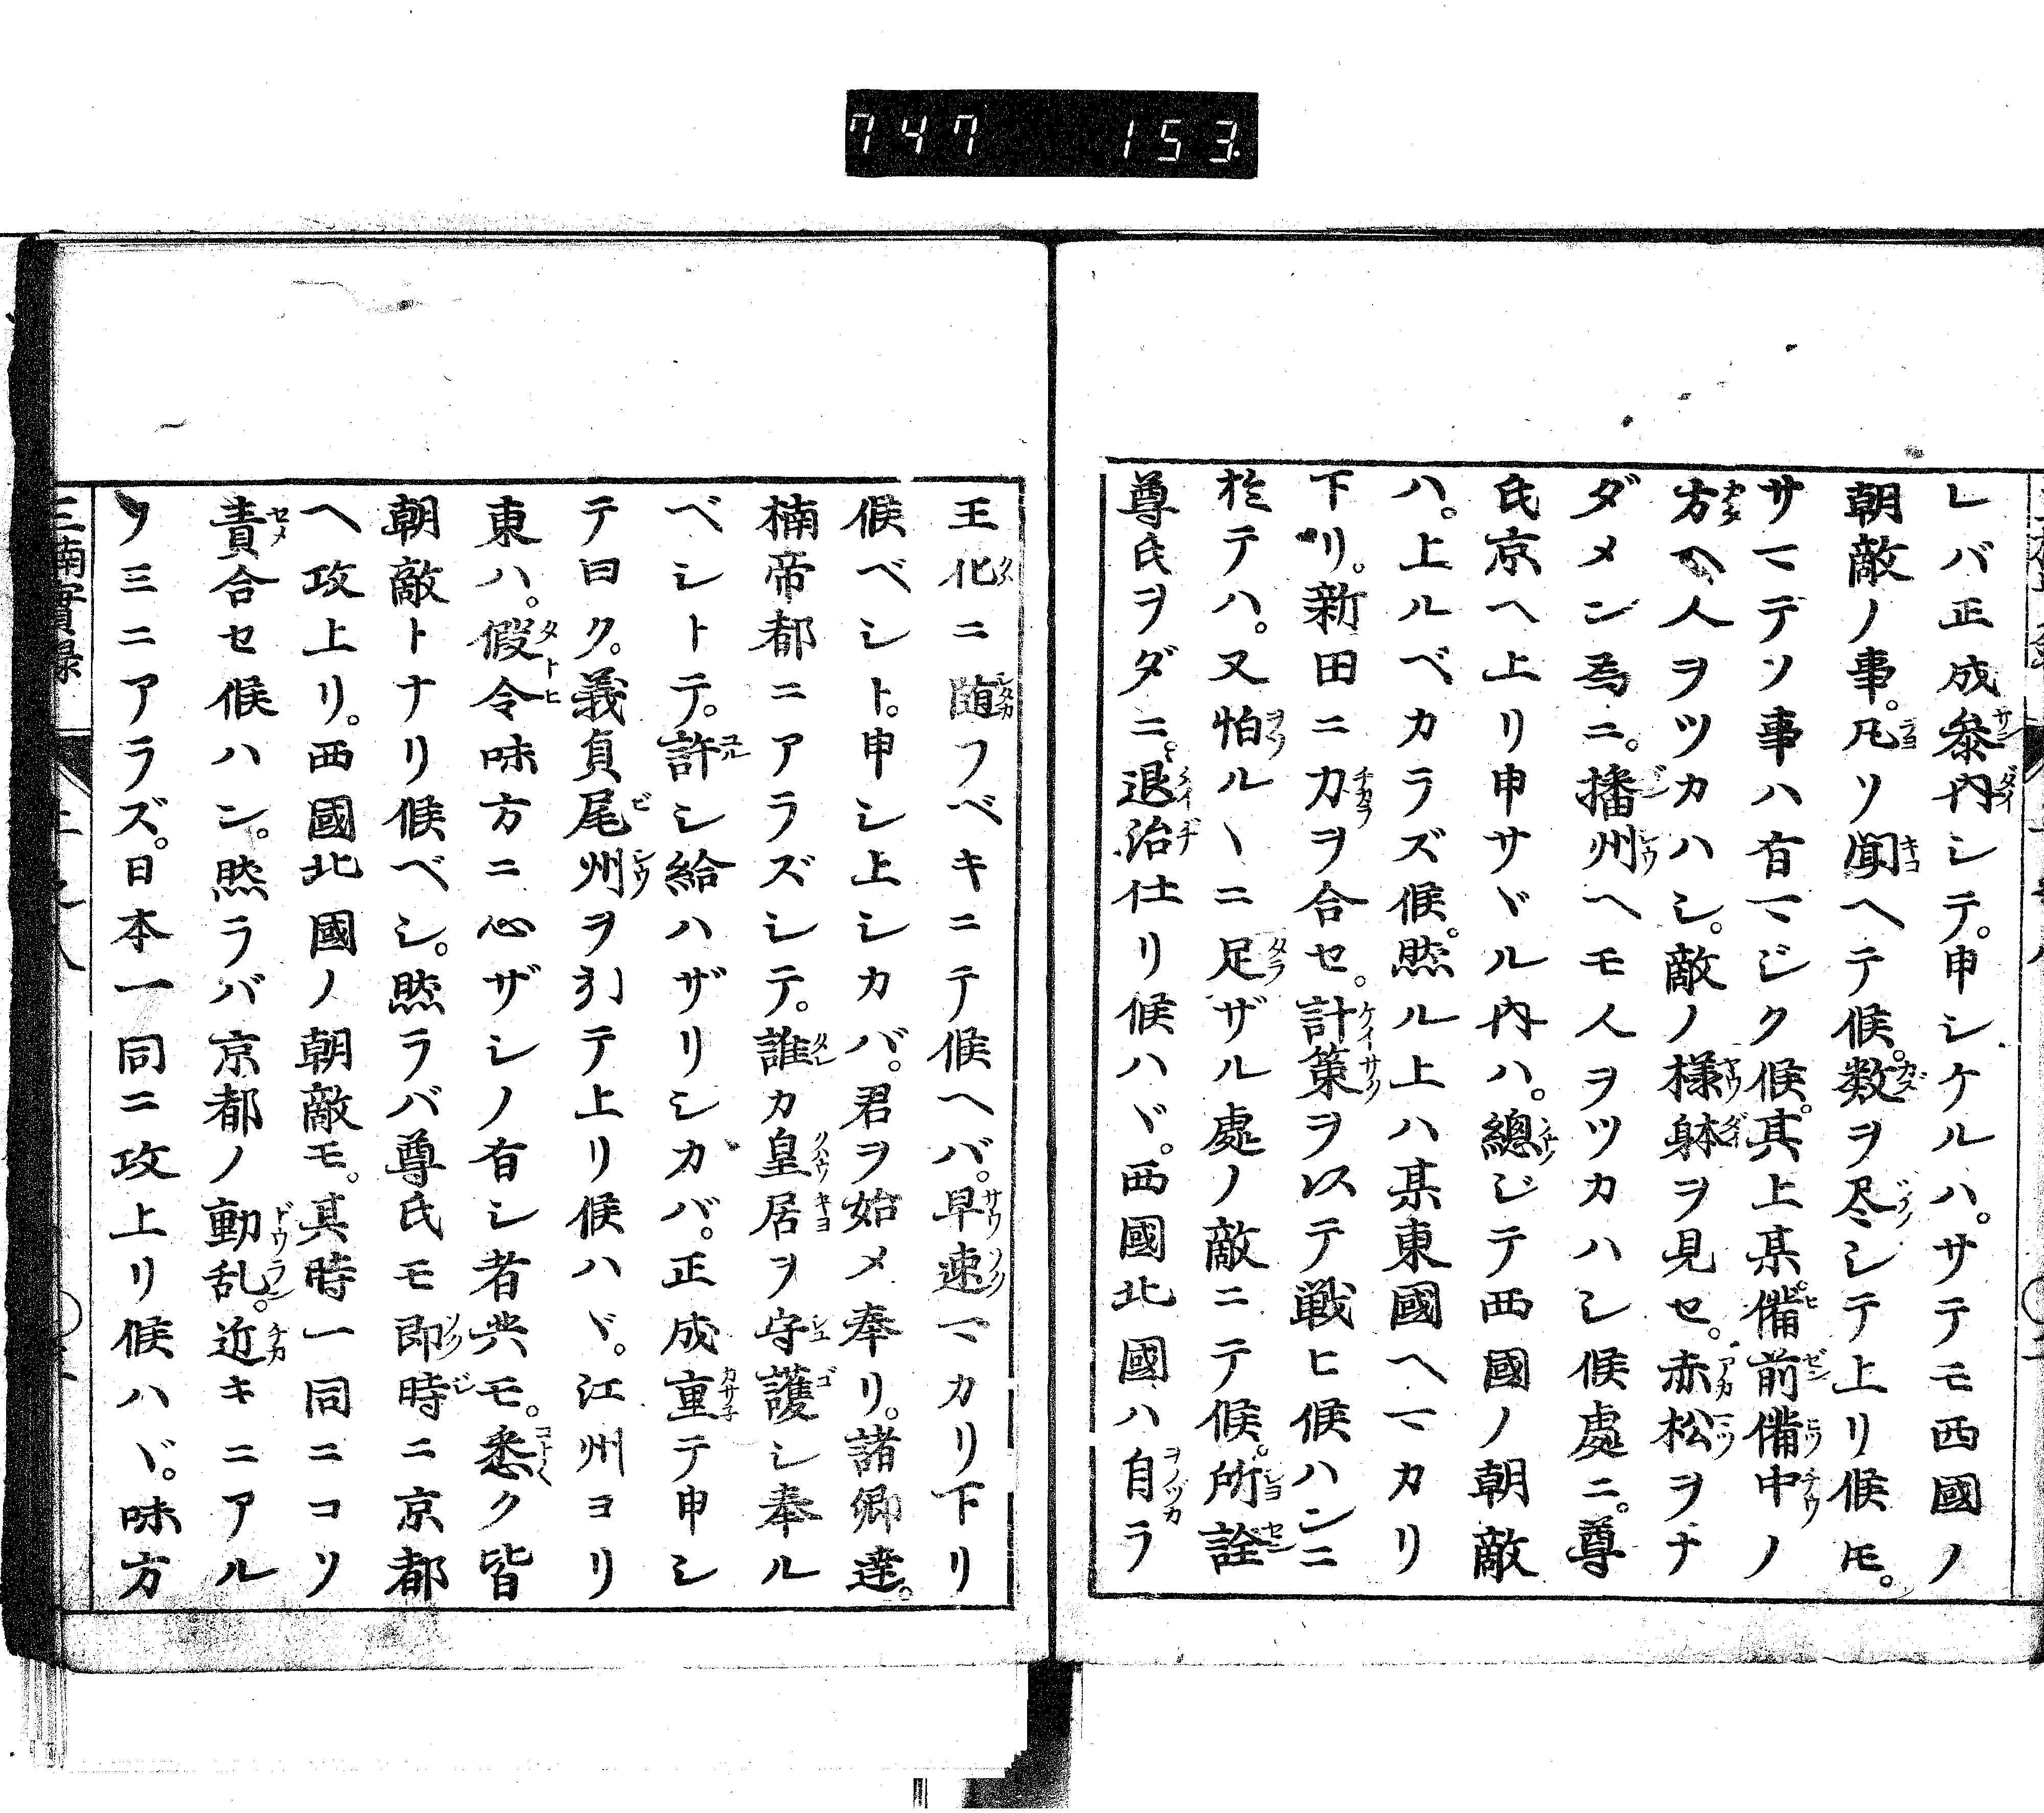 747 153
レバ正成參内シテ。申シケルハ。サテモ西國ノ
朝敵ノ事。凡ソ聞ヘテ候。数ヲ尽シテ上リ候ヘ𪜈。
サマデノ事ハ有マジク候。其上某。備前備中ノ
方ヘ人ヲツカハシ。敵ノ様躰ヲ見セ。赤松ヲナ
ダメン為ニ。播州ヘモ人ヲツカハシ候處ニ。尊
氏京ヘ上リ申サヾル内ハ。總ジテ西國ノ朝敵
ハ。上ルベカラズ候。然ル上ハ某東國ヘマカリ
下リ。新田ニ力ヲ合セ。計策ヲ以テ戦ヒ候ハンニ
於テハ。又怕ルヽニ足ザル處ノ敵ニテ候。所詮
尊氏ヲダニ。退治仕リ候ハヾ。西國北國ハ自ラ
王化ニ随フベキニテ候ヘバ。早速マカリ下リ
候ベシト。申シ上シカバ。君ヲ始メ奉リ。諸卿達。
楠帝都ニアラズシテ。誰カ皇居ヲ守護シ奉ル
ベシトテ。許シ給ハザリシカバ。正成重テ申シ
テ曰ク。義貞尾州ヲ引テ上リ候ハヾ。江州ヨリ
東ハ。假令味方ニ心ザシノ有シ者共モ。悉ク皆
朝敵トナリ候ベシ。然ラバ尊氏モ即時ニ京都
ヘ攻上リ。西國北國ノ朝敵モ。其時一同ニコソ
責合セ候ハン。然ラバ京都ノ動乱。近キニアル
ノミニアラズ。日本一同ニ攻上リ候ハヾ。味方
三楠實録